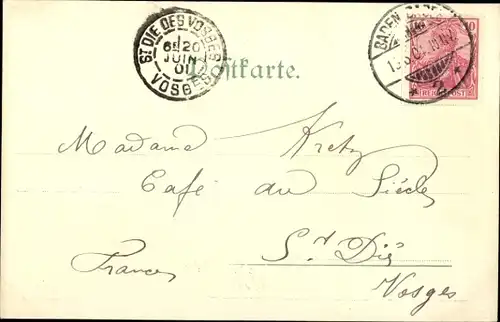 ST DIE DES VOSGES
1
6E 20
JUIN
01
VOSGES
Postkarte.
BADEN
10
REICHSPOST
Madame Kretz
Café au Siècle
St Dié
France
Vosges